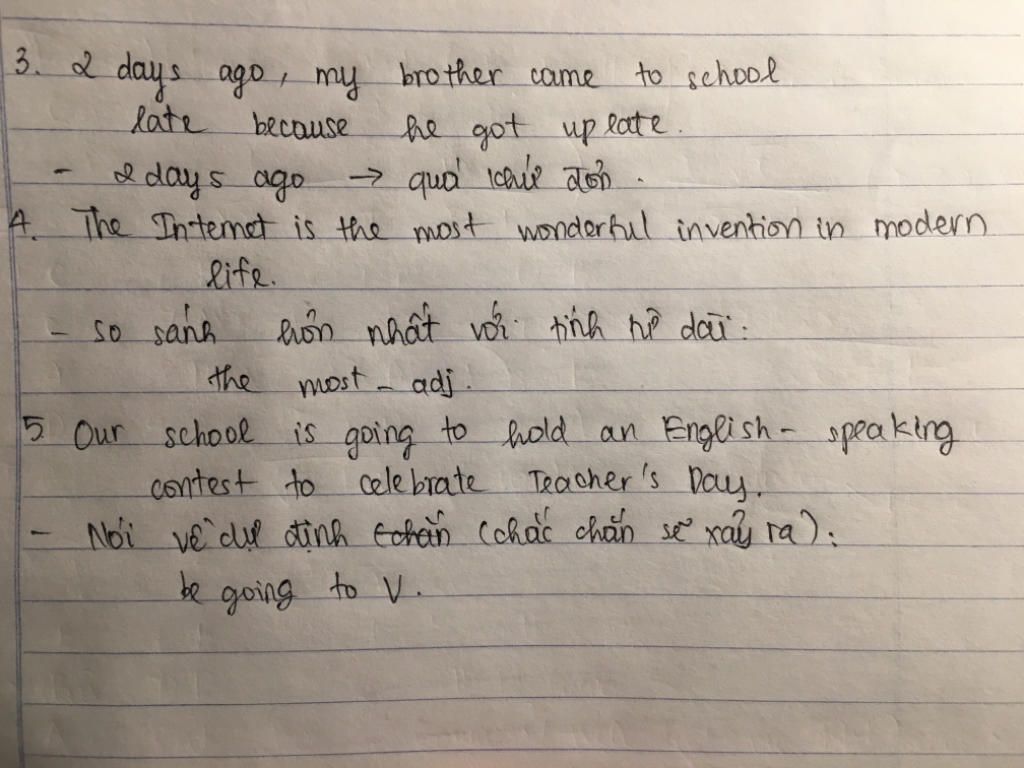 3. 2 days ago, my brother came to school
late because he got up late.
- 2 days ago → quá khứ đơn.
4. The Internet is the most wonderful invention in modern
life.
- so sánh hơn nhất với tính từ dài:
the most - adj.
5. Our school is going to hold an English - speaking
contest to celebrate Teacher's Day.
- Nói về dự định chắn (chắc chắn sẽ xảy ra):
be going to V.